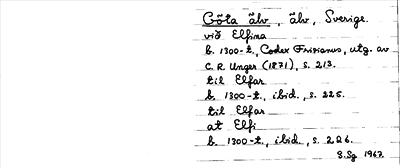 Göta älv, älv, Sverige.
við Elfina
b. 1300-t., Codex Frisianus, utg. av
C. R. Unger (1871), s. 213.
til Elfar
b. 1300-t., ibid., s. 225.
til Elfar
at Elfi
b. 1300-t., ibid., s. 226.
S.Sg 1967.